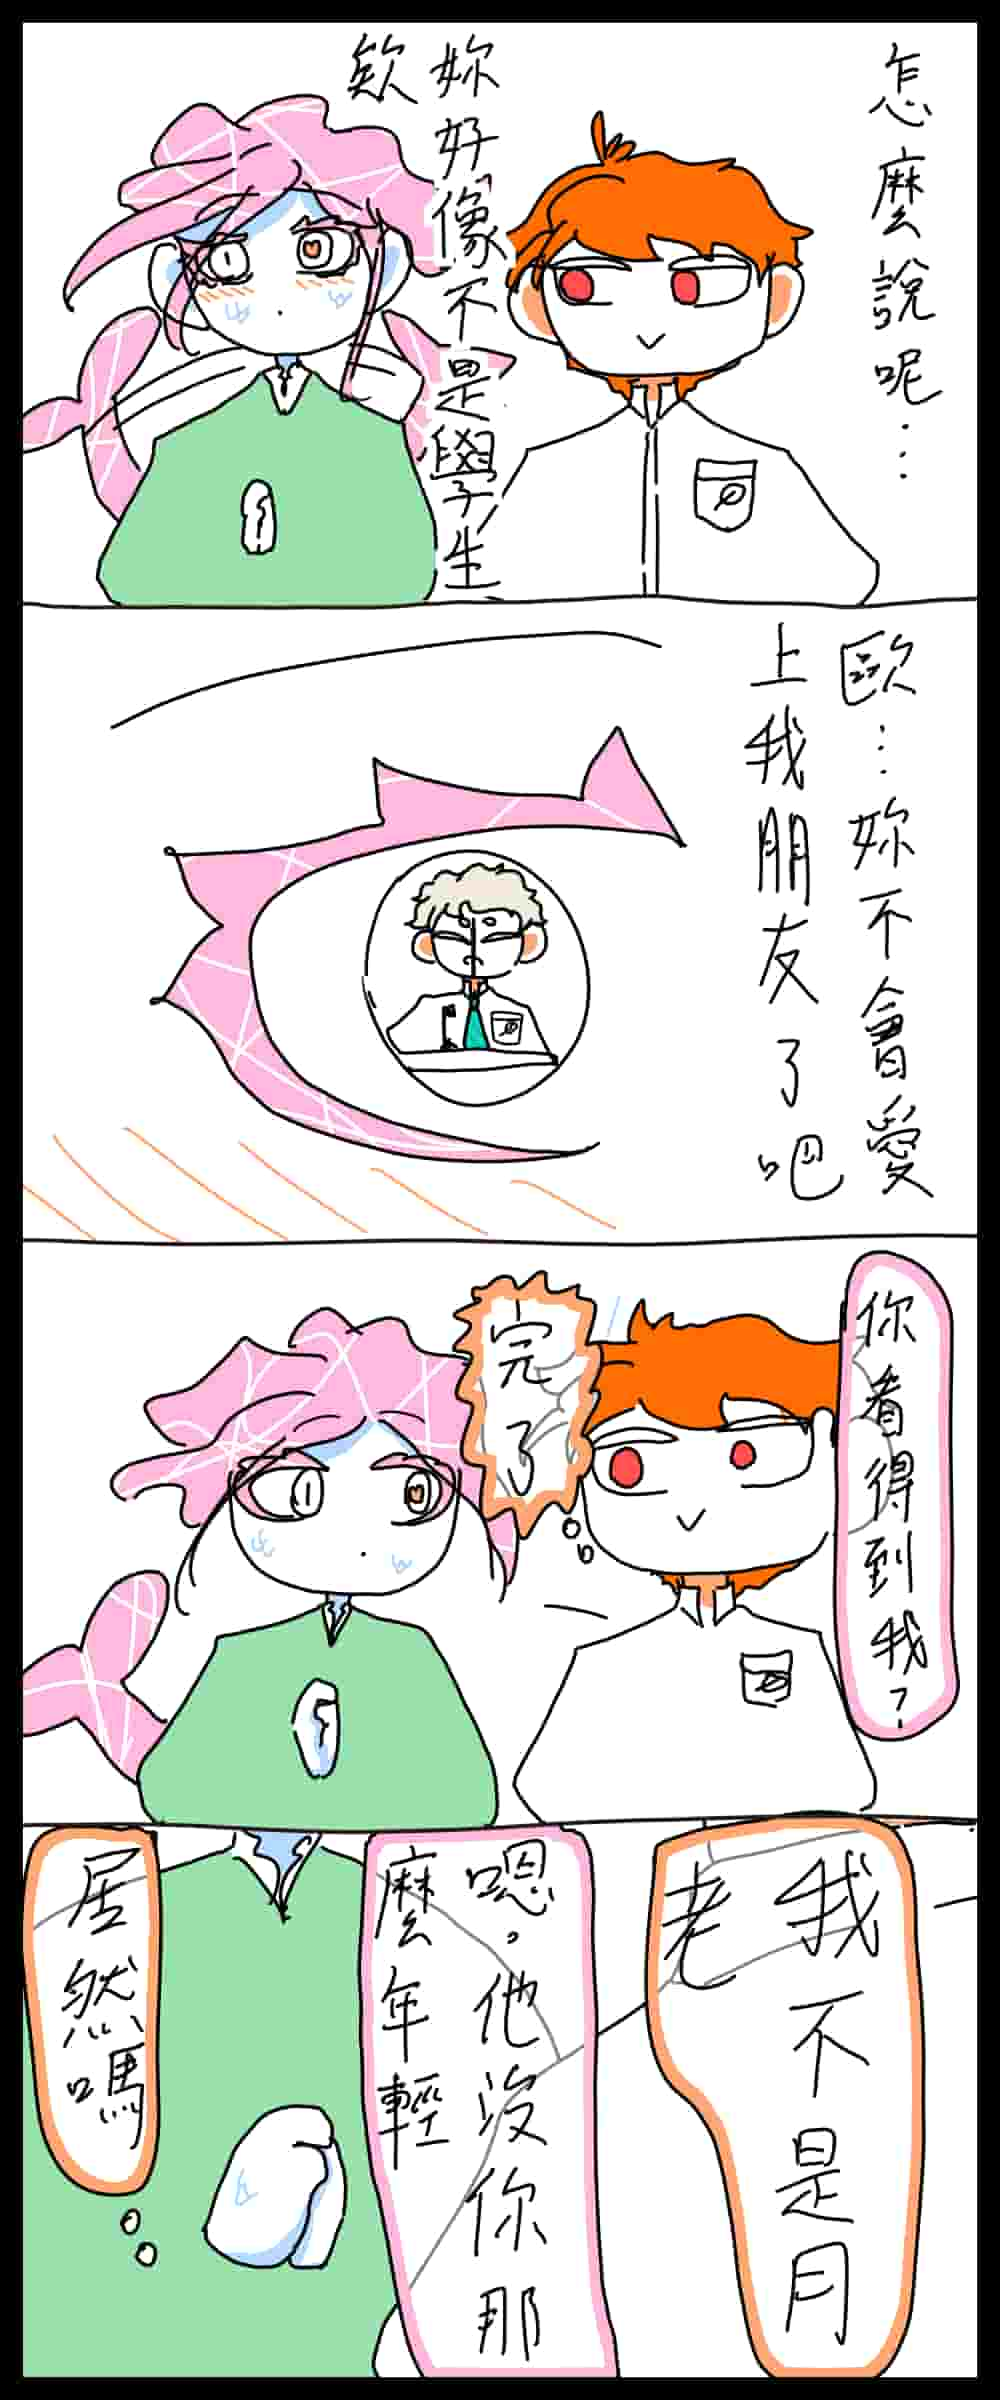 怎麼說呢⋯
妳好像不是學生
欸
歐⋯妳不會愛
上我朋友了吧
你看得到我？
完了
我不是月
老
嗯。他沒你那
麼年輕
居然嗎